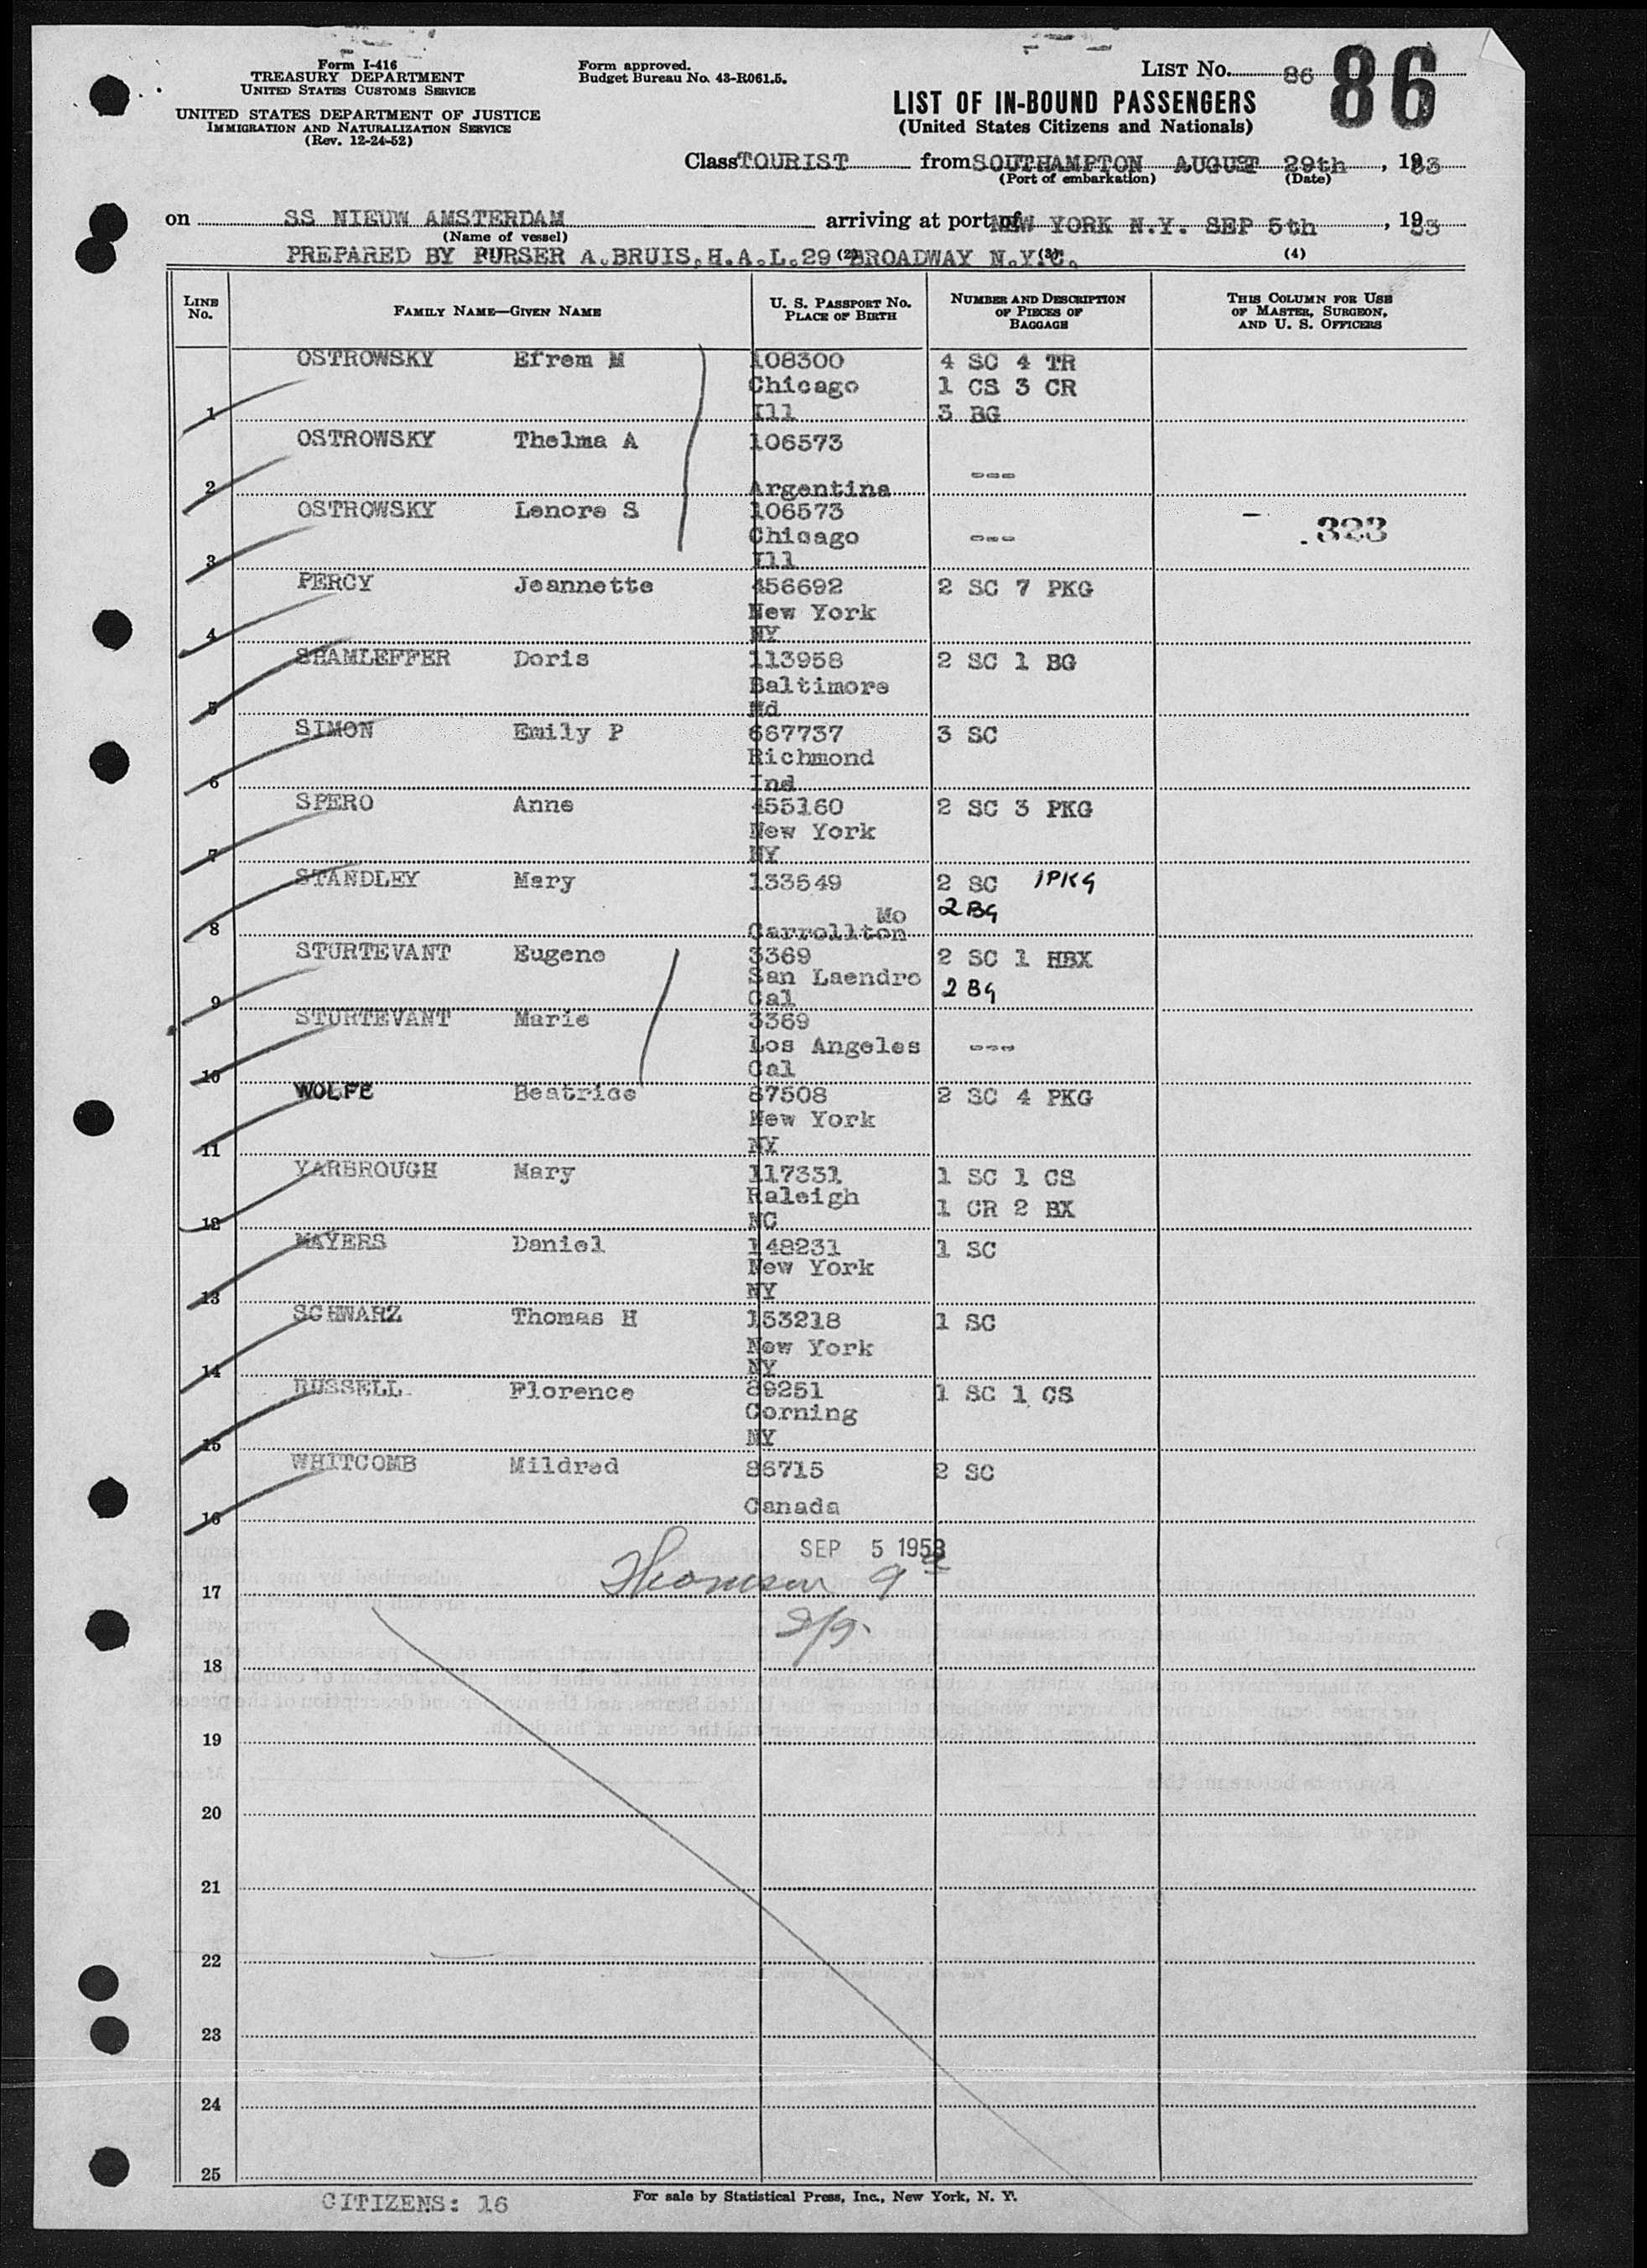 Form I-416
TREASURY DEPARTMENT
UNITED STATES CUSTOMS SERVICE
UNITED STATES DEPARTMENT OF JUSTICE
IMMIGRATION AND NATURALIZATION SERVICE
(Rev. 12-24-52)
Form approved.
Budget Bureau No. 43-R061.5.
LIST No. 86 86
LIST OF IN-BOUND PASSENGERS
(United States Citizens and Nationals)
Class TOURIST from SOUTHAMPTON AUGUST 29th, 1953
(Port of embarkation) (Date)
on SS NIEUW AMSTERDAM arriving at port of NEW YORK N.Y. SEP 5th, 1953
(Name of vessel)
PREPARED BY PURSER A.BRUIS.H.A.L.29 (2) BROADWAY N.Y.C. (3) (4)
LINE No. FAMILY NAME—GIVEN NAME U. S. PASSPORT NO. PLACE OF BIRTH NUMBER AND DESCRIPTION OF PIECES OF BAGGAGE THIS COLUMN FOR USE OF MASTER, SURGEON, AND U. S. OFFICERS
OSTROWSKY Efrem M 108300 4 SC 4 TR
Chicago 1 CS 3 CR
1 Ill 3 BG
OSTROWSKY Thelma A 106573
---
2 Argentina
OSTROWSKY Lenore S 106573
Chicago --- 323
3 Ill
PERCY Jeannette 456692 2 SC 7 PKG
New York
4 NY
SHAMLEFFER Doris 113958 2 SC 1 BG
Baltimore
5 Md
SIMON Emily P 667737 3 SC
Richmond
6 Ind
SPERO Anne 455160 2 SC 3 PKG
New York
7 NY
STANDLEY Mary 133549 2 SC 1PKG
Mo 2 BG
8 Carrollton
STURTEVANT Eugene 3369 2 SC 1 HBX
San Laendro 2 BG
9 Cal
STURTEVANT Marie 3369
Los Angeles ---
10 Cal
WOLFE Beatrice 87508 2 SC 4 PKG
New York
11 NY
YARBROUGH Mary 117331 1 SC 1 CS
Raleigh 1 CR 2 BX
12 NC
MAYERS Daniel 148231 1 SC
New York
13 NY
SCHWARZ Thomas H 153218 1 SC
New York
14 NY
RUSSELL Florence 89251 1 SC 1 CS
Corning
15 NY
WHITCOMB Mildred 86715 2 SC
Canada
16
SEP 5 1953
17
18
19
20
21
22
23
24
25
CITIZENS: 16
For sale by Statistical Press, Inc., New York, N. Y.